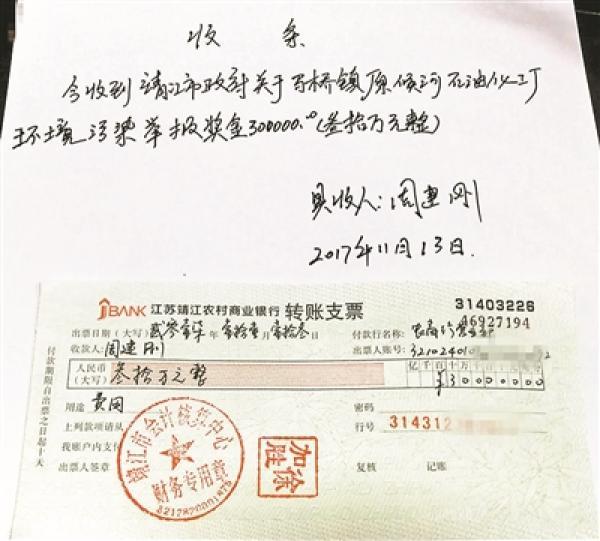 收条
今收到靖江市政府关于马桥镇原侯河石油化工厂
环境污染举报奖金300000.00(叁拾万元整)
具收人:周建刚
2017年11月13日.
BANK 江苏靖江农村商业银行 转账支票
31403226
46927194
出票日期(大写)贰零壹柒年壹拾壹月壹拾叁日
付款行名称:
收款人:周建刚
出票人账号:32102401
人民币(大写)叁拾万元整
亿千百十万千百十元角分
¥30000000
用途 费用
密码
上列款项请从
行号 31431
我账户内支付
出票人签章
复核 记账
付款期限自出票之日起十天
靖江市会计核算中心
财务专用章
3212820001875
加徐胜